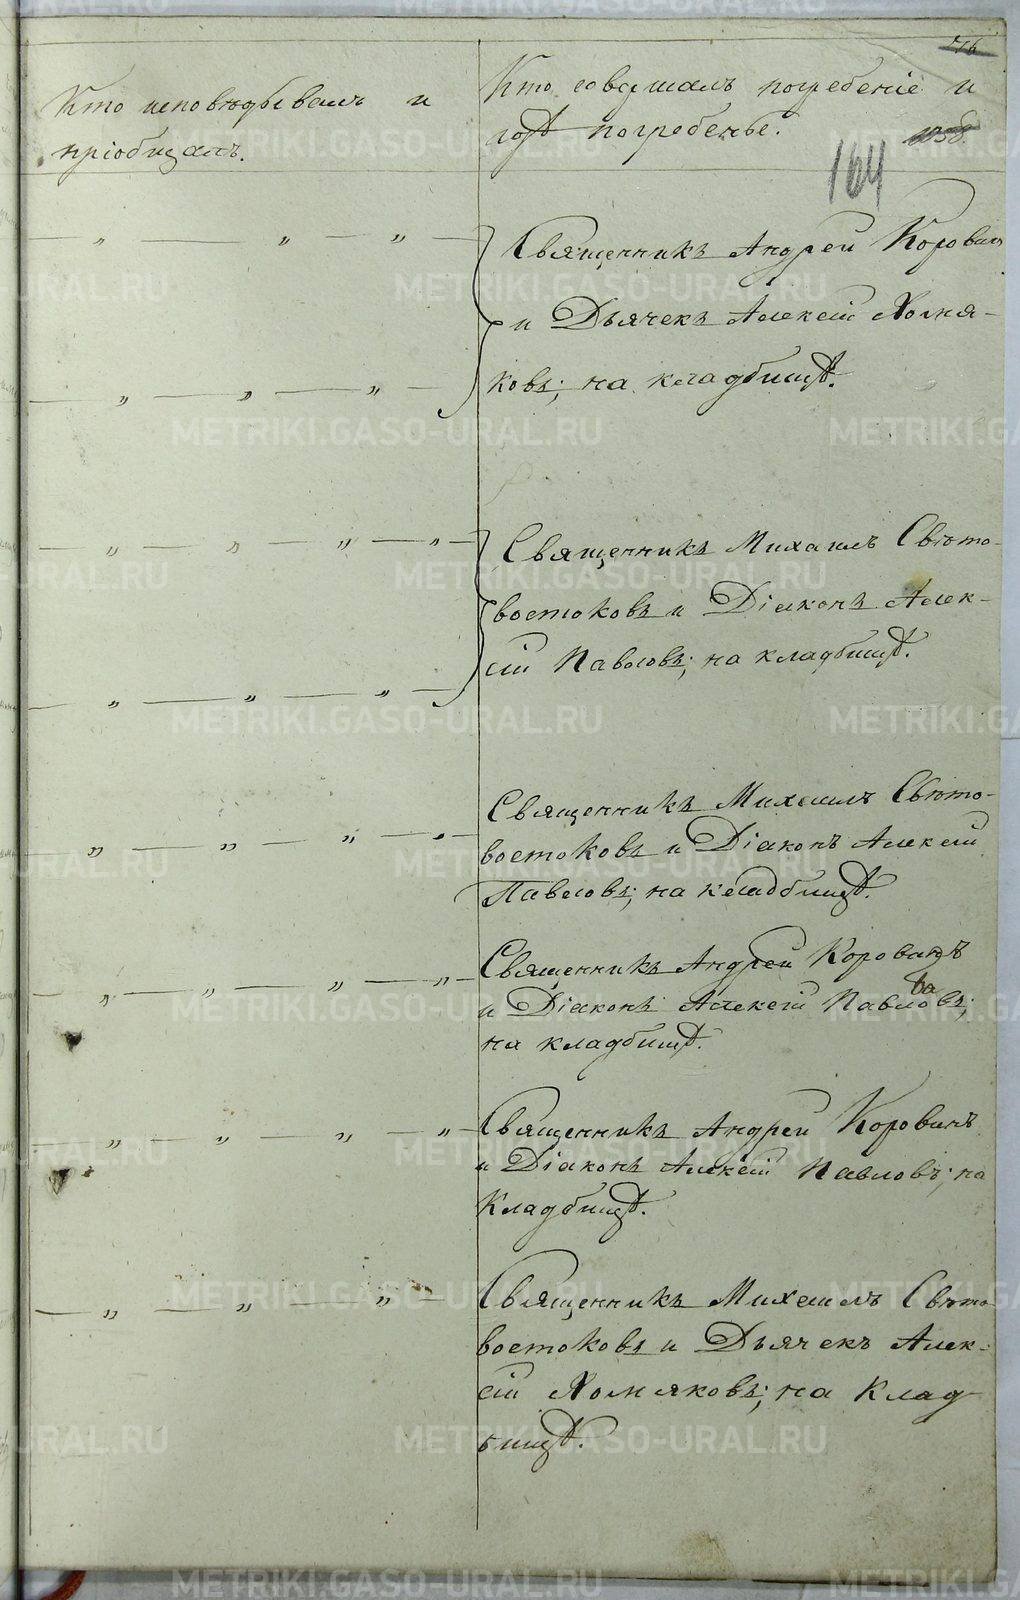 Кто исповѣдывалъ и
пріобщалъ.
Кто совершалъ погребеніе и
гдѣ погребены.
164
Священникъ Андрей Коровин
и Дьячекъ Алексій Холмя-
ковъ; на кладбищѣ.
Священникъ Михаилъ Свѣто-
востоковъ и Діаконъ Алек-
сій Павловъ; на кладбищѣ.
Священникъ Михаилъ Свѣто-
востоковъ и Діаконъ Алексій
Павловъ; на кладбищѣ.
Священникъ Андрей Коровинъ
и Діаконъ Алексій Павловъ;
на кладбищѣ.
Священникъ Андрей Коровинъ
и Діаконъ Алексій Павловъ; на
Кладбищѣ.
Священникъ Михаилъ Свѣто
востоковъ и Дьячекъ Алек-
сій Холмяковъ; наКлад
бищѣ.
METRIKI.GASO-URAL.RU